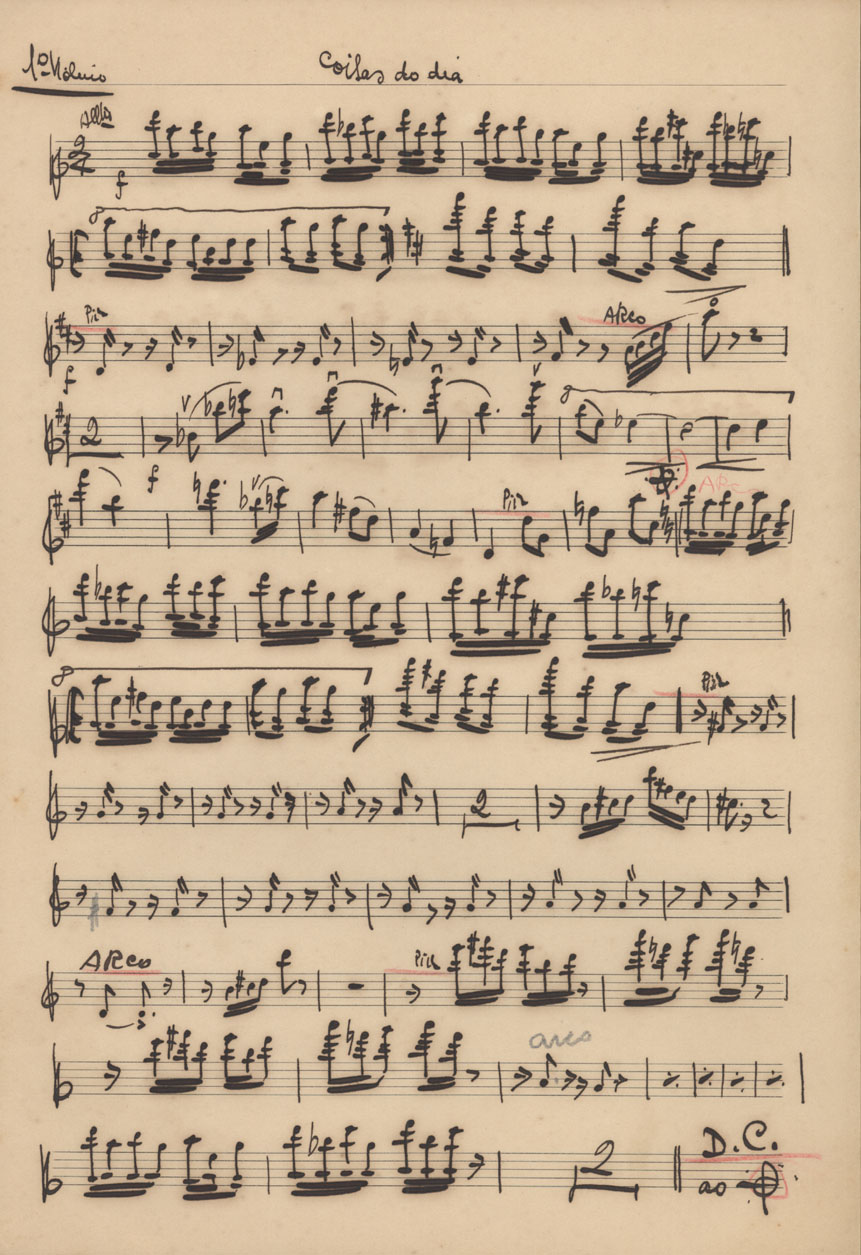 1º Violino Coisas do dia
Allº
2
f
8
Piz ARCO
f
8
2
f
Piz ARCO
8
Piz
2
ARCO Piz
3
arco
D.C.
2
ao